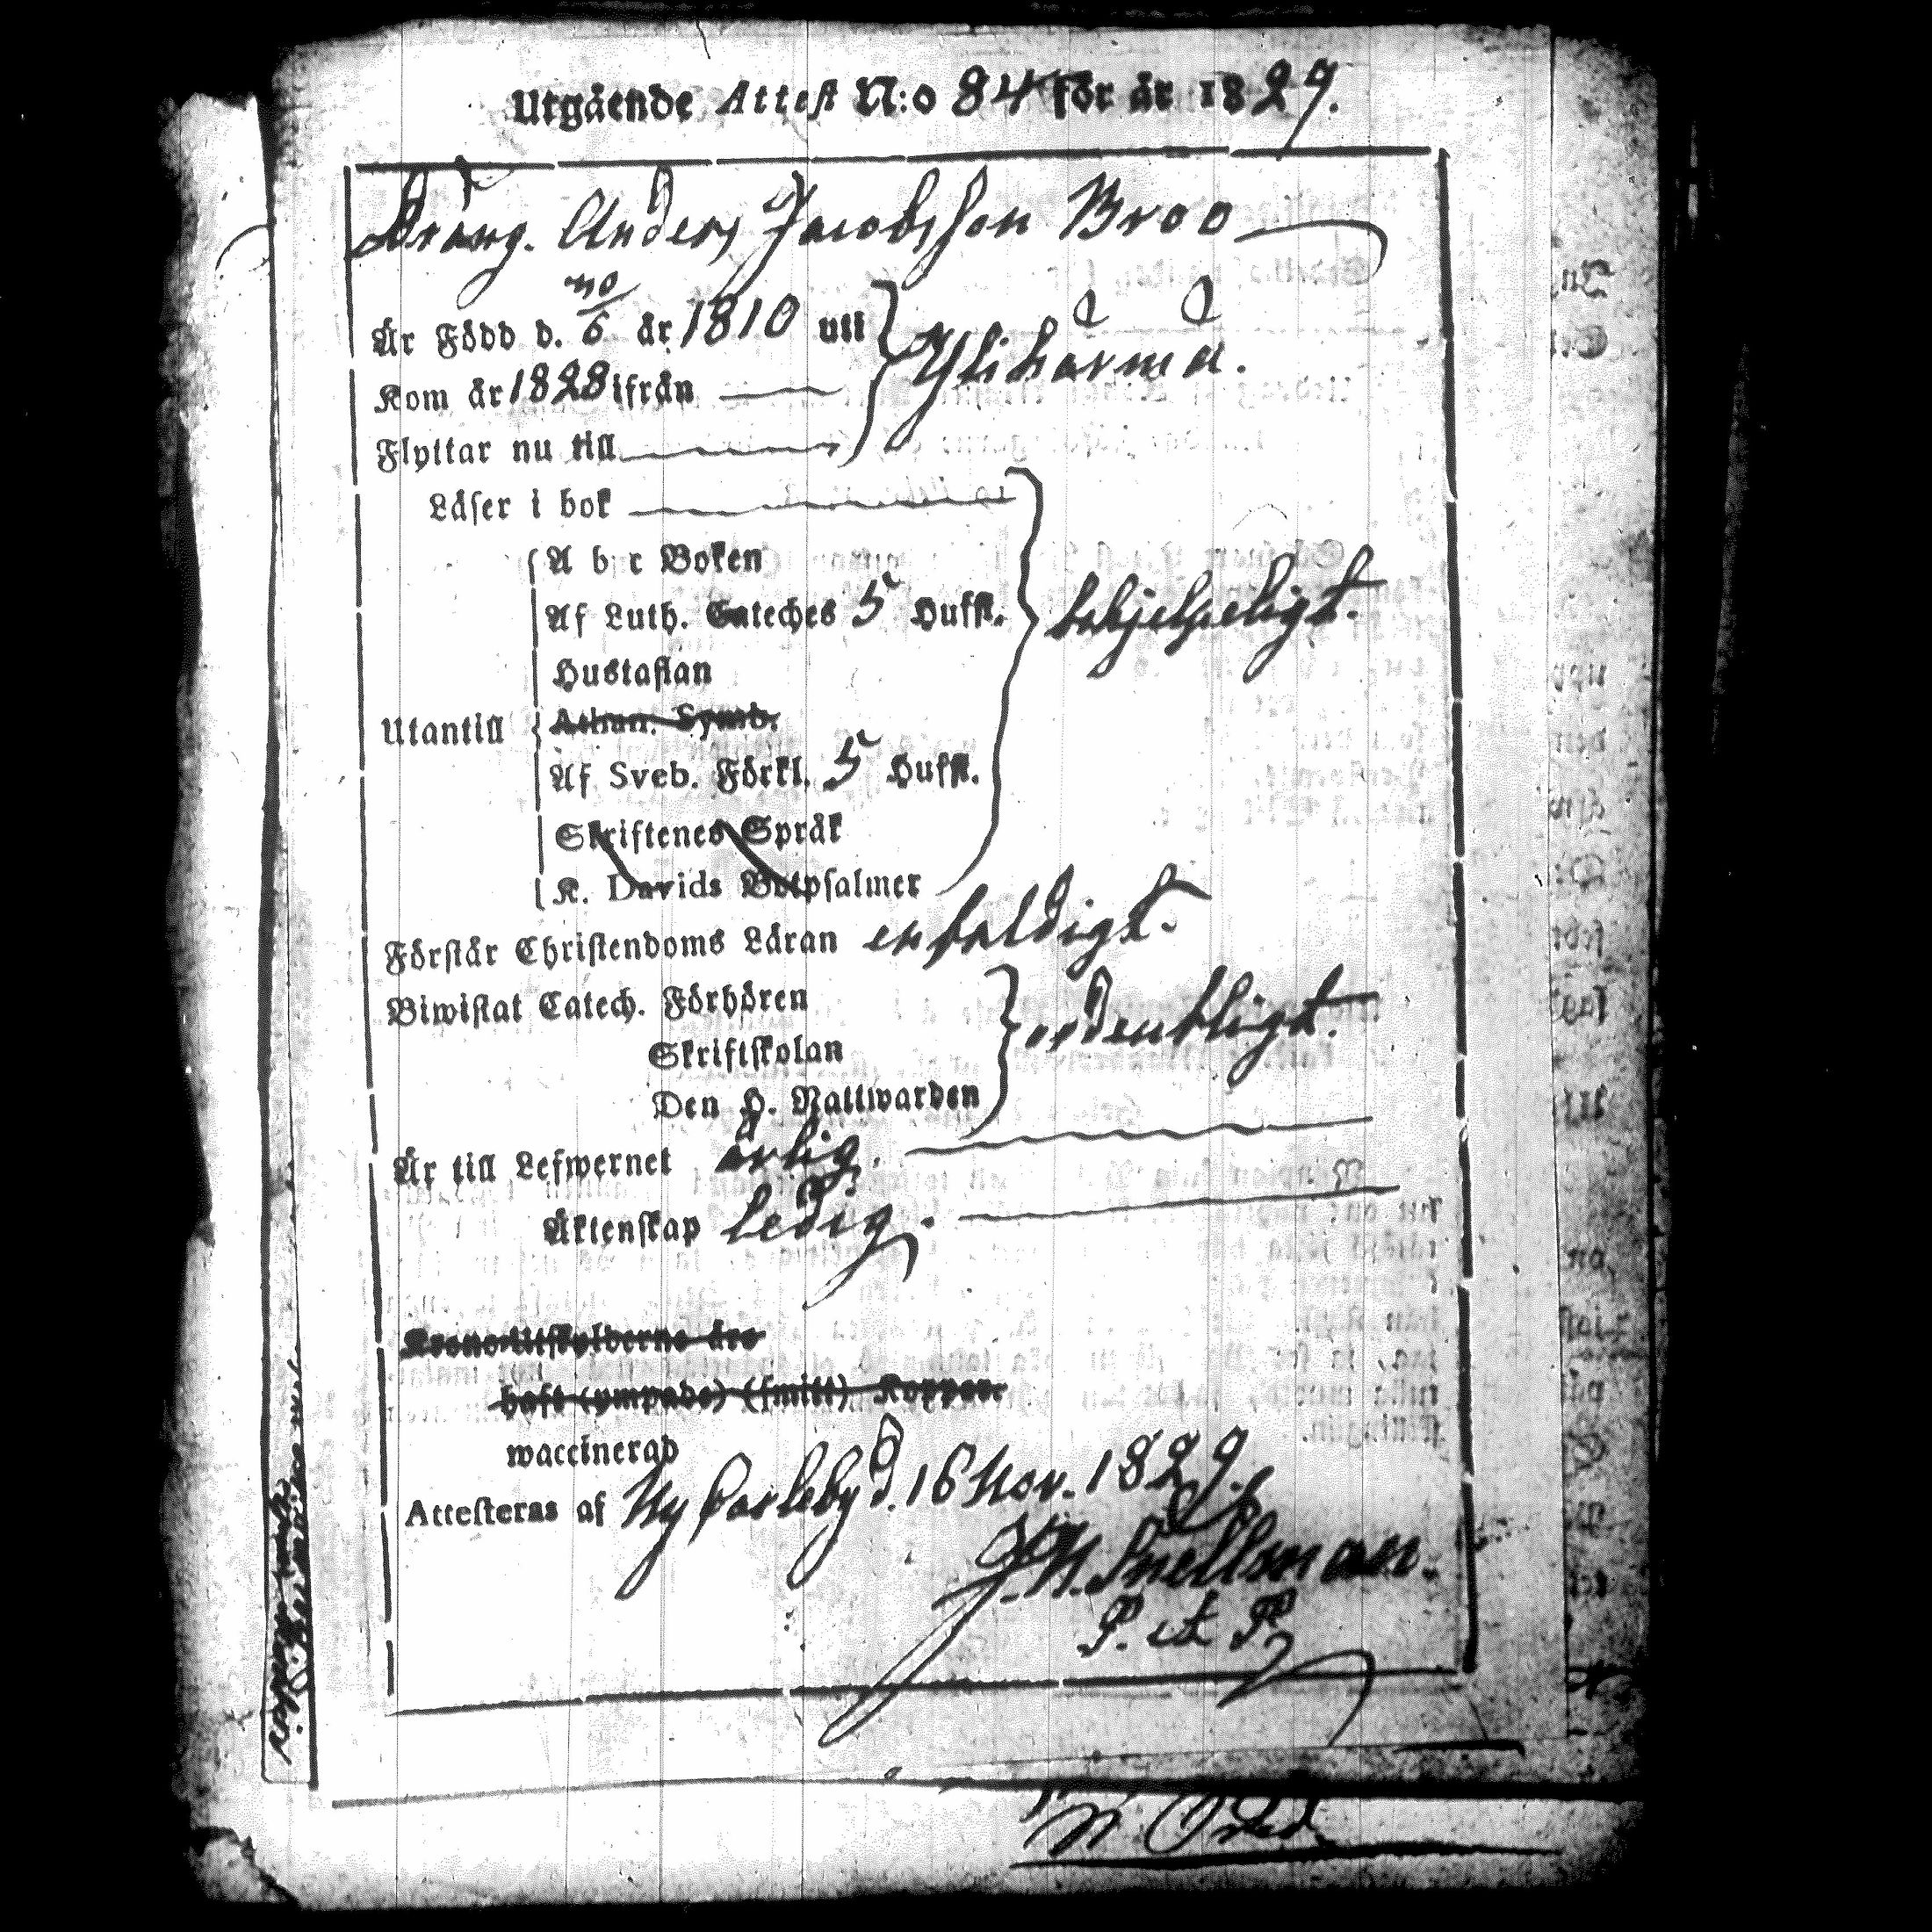 Utgående Attest N:o 84 för år 1829.
Dräng. Anders Jacobsson Broo
Är Född d. 6 år 1810 uti
Kom år 1828 ifrån
Ylihärmä.
Flyttar nu till
Läser i bok
A b c Boken
Af Luth. Cateches 5 Hufst.
behjelpeligt.
Hustaflan
Utantill
Athan. Symb.
Af Sveb. Förkl. 5 Hufst.
Skriftenes Språk
K. Davids Botpsalmer
Förstår Christendoms Läran enfaldigt.
Biwistat Catech. Förhören
ordentligt.
Skriftskolan
Den H. Nattwarden
Är till Lefwernet ärlig.
Äktenskap ledig.
Krono-Utskylderne äro
haft (ympade) (smitt) Koppor.
waccinerad
Attesteras af Ny Carleby d. 16 Nov. 1829.
Snellman.
P. et P.